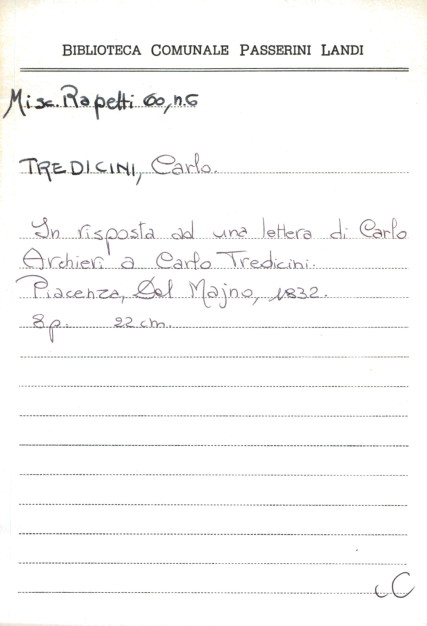 BIBLIOTECA COMUNALE PASSERINI LANDI
Misc. Rapetti 60, n. 6
TREDICINI, Carlo.
In risposta ad una lettera di Carlo
Archieri a Carlo Tredicini.
Piacenza, Del Majno, 1832.
8 p. 22 cm.